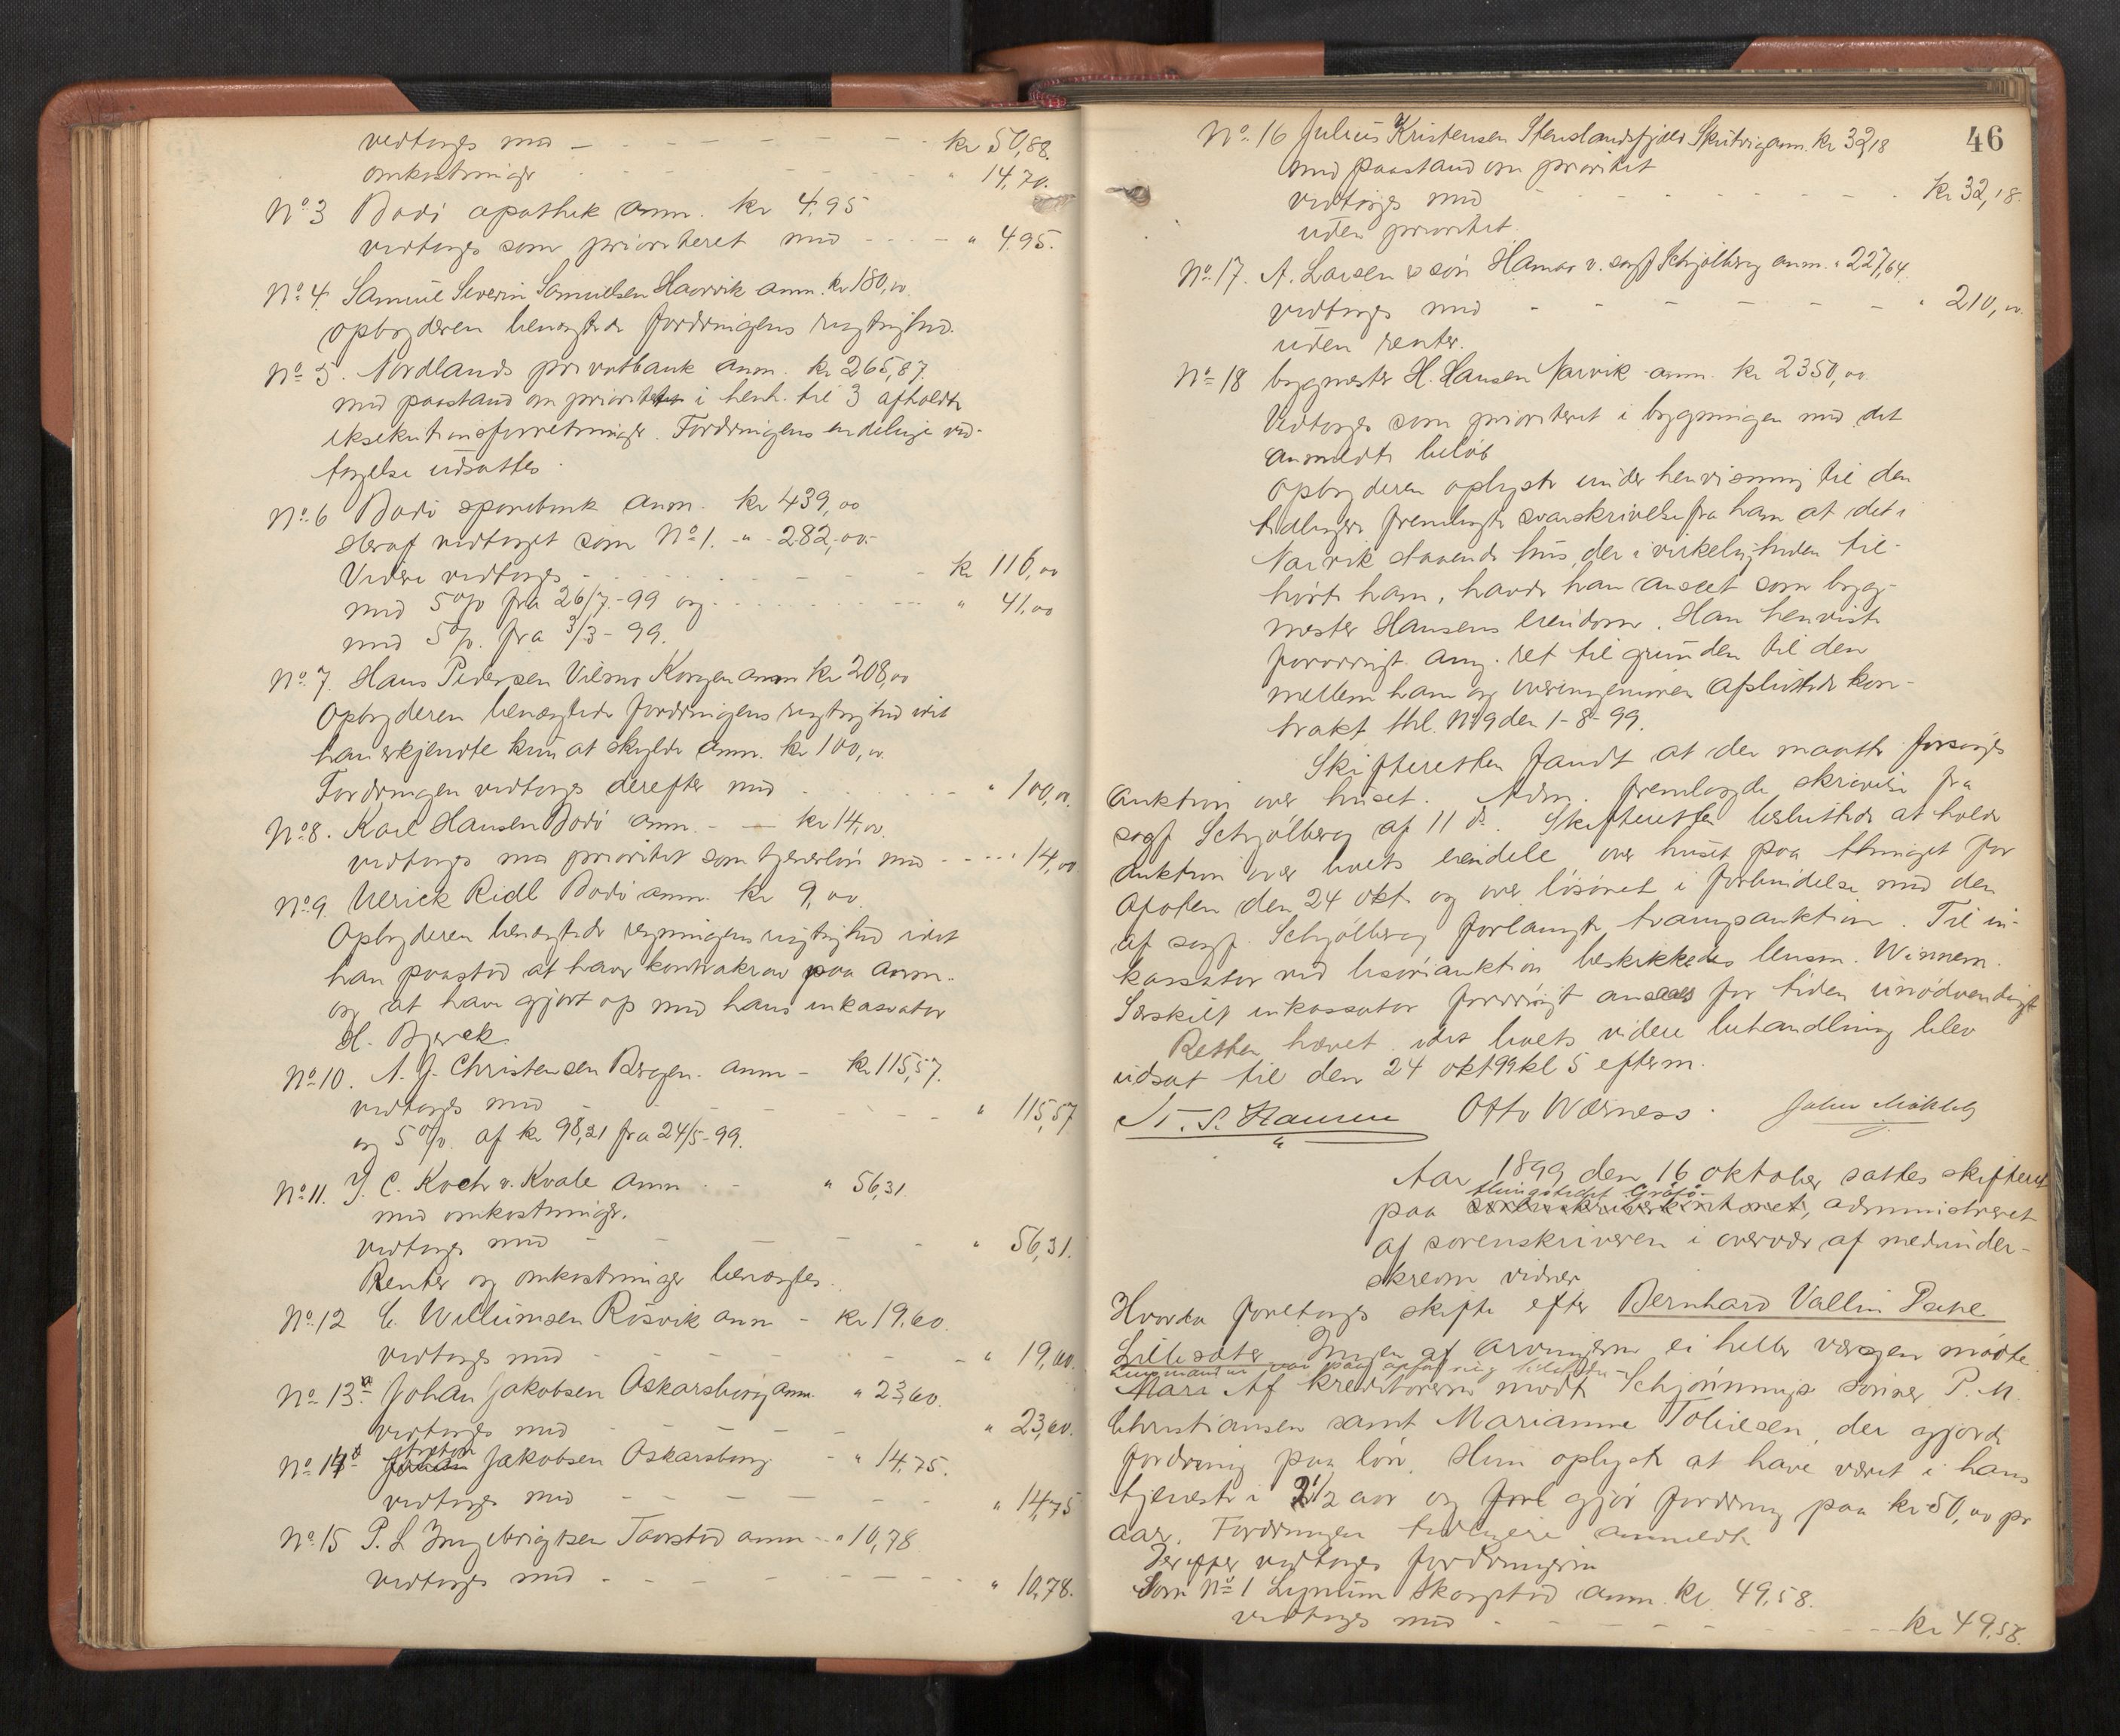 vedtoges med - - - - - kr 50,88.
omkostninger - - - - - " 14,70.
No. 3 Bodö apothek anm. kr 4,95
vedtoges som prioriteret med - - - - " 4,95.
No. 4. Samuel Severin Samuelsen Haarvik anm. kr 180,00
opbyderen benegtede fordringens rigtighed.
No. 5. Nordlands privatbank anm. kr 265,87
med paastand om prioritet i henh. til 3 afholdte
eksekutionsforretninger. Fordringens endelige ved-
tagelse udsattes.
No. 6 Bodö sparebank anm. kr 439,00
Heraf vedtaget som No 1. - " - 282,00.-
Videre vedtoges - - - - - kr 116,00
med 5% fra 26/7-99 og - - - - " 41,00
med 5%. fra 3/3-99.
No. 7. Hans Pedersen Korgen anm kr 208,00
Opbyderen benegtede fordringens rigtighed idet
han erkjendte kun at skylde anm. kr 100,00.
Fordringen vedtoges derefter med - - - - " 100,00.
No 8. Karl Hansen Bodö anm. - - kr 14,00.
vedtoges med prioritet som tjenerlön med - - - - " 14,00
No 9. Ulrick Ridl Bodö anm. kr 9,00.
Opbyderen benegtede regningens rigtighed idet
han paastod at have kontrakrav paa anm.
og at have gjort op med hans inkassator
H. Bjerck.
No 10. A. J. Christensen Bergen. anm - kr 115,57.
vedtoges med - - - - - " 115,57
og 5%. af kr 98,21 fra 24/5-99.
No 11. J. C. Koch v. Kvale anm - " 56,31.
med omkostninger.
vedtoges med - - - - - " 56,31.
Renter og omkostninger benegtes.
No 12 C. Willumsen Rösvik anm - kr 19,60.
vedtoges med - - - - - " 19,60.
No 13 Johan Jakobsen Oskarsborg anm. " 23,60.
vedtoges med - - - - - " 23,60.
No 14 Jakobsen Oskarsborg - " 14,75.
vedtoges med - - - - - " 14,75
No 15 P. L Ingebrigtsen Taarstad anm - " 10,78
vedtoges med - - - - - " 10,78.
46
No. 16 Julius Kristensen Stenslandsfjeld Skutvig anm. kr 32,18
med paastand om prioritet
vedtoges med - - - - - kr 32,18.
uden prioritet.
No. 17. A. Larsen & sön Hamar v. sagf Schjölberg anm. " 227,64.
vedtoges med - - - - - " 210,00.
uden renter.
No 18 bygmester H. Hansen Narvik anm. kr 2350,00
Vedtoges som prioriteret i bygningen med det
anmeldte belöb
Opbyderen oplyste under henvisning til den
tidligere fremlagte svarskrivelse fra ham at det i
Narvik staaende hus, der i virkeligheden til-
hörte ham, havde han anseet som byg-
mester Hansens eiendom. Han henviste
forövrigt ang. ret til grunden til den
mellem ham og overingeniören afsluttede kon-
trakt thl. No 9 den 1-8-99.
Skifteretten fandt at der maatte forsöges
auktion over huset. Adm. fremlagde skrivelse fra
sagf Schjölberg af 11 ds. Skifteretten besluttede at holde
auktion over boets eiendele over huset paa thinget for
Ofoten den 24 okt. og over lösöret i forbindelse med den
af sagf. Schjölberg forlangte tvangsauktion. Til in-
kassator ved lösöreauktion beskikkedes lensm. Winnem.
Særskilt inkassator forövrigt ansaaes for tiden unödvendigt
Retten hævet idet boets videre behandling blev
udsat til den 24 okt 99 kl 5 efterm.
N. S. Hansen Otto Wærness.
Aar 1899 den 16 oktober sattes skifteret
thingstedet Gräsö
paa sorenskriverkontoret, administreret
af sorenskriveren i overvær af medunder-
skrevne vidner
Hvorda foretoges skifte efter Bernhard Vallin
Ingen af arvingerne ei heller værgen mödte.
Af kreditorerne mödte Schjönnings sönner, P. M.
Christiansen samt Marianne Tobiesen, der gjorde
fordring paa lön. Hun oplyste at have været i hans
tjeneste i 2 1/2 aar og gjör fordring paa kr 50,00 pr
aar. Fordringen tidligere anmeldt
Derefter vedtoges fordringerne
Som No 1 anm. kr. 49,58.
vedtoges med - - - - - kr 49,58.